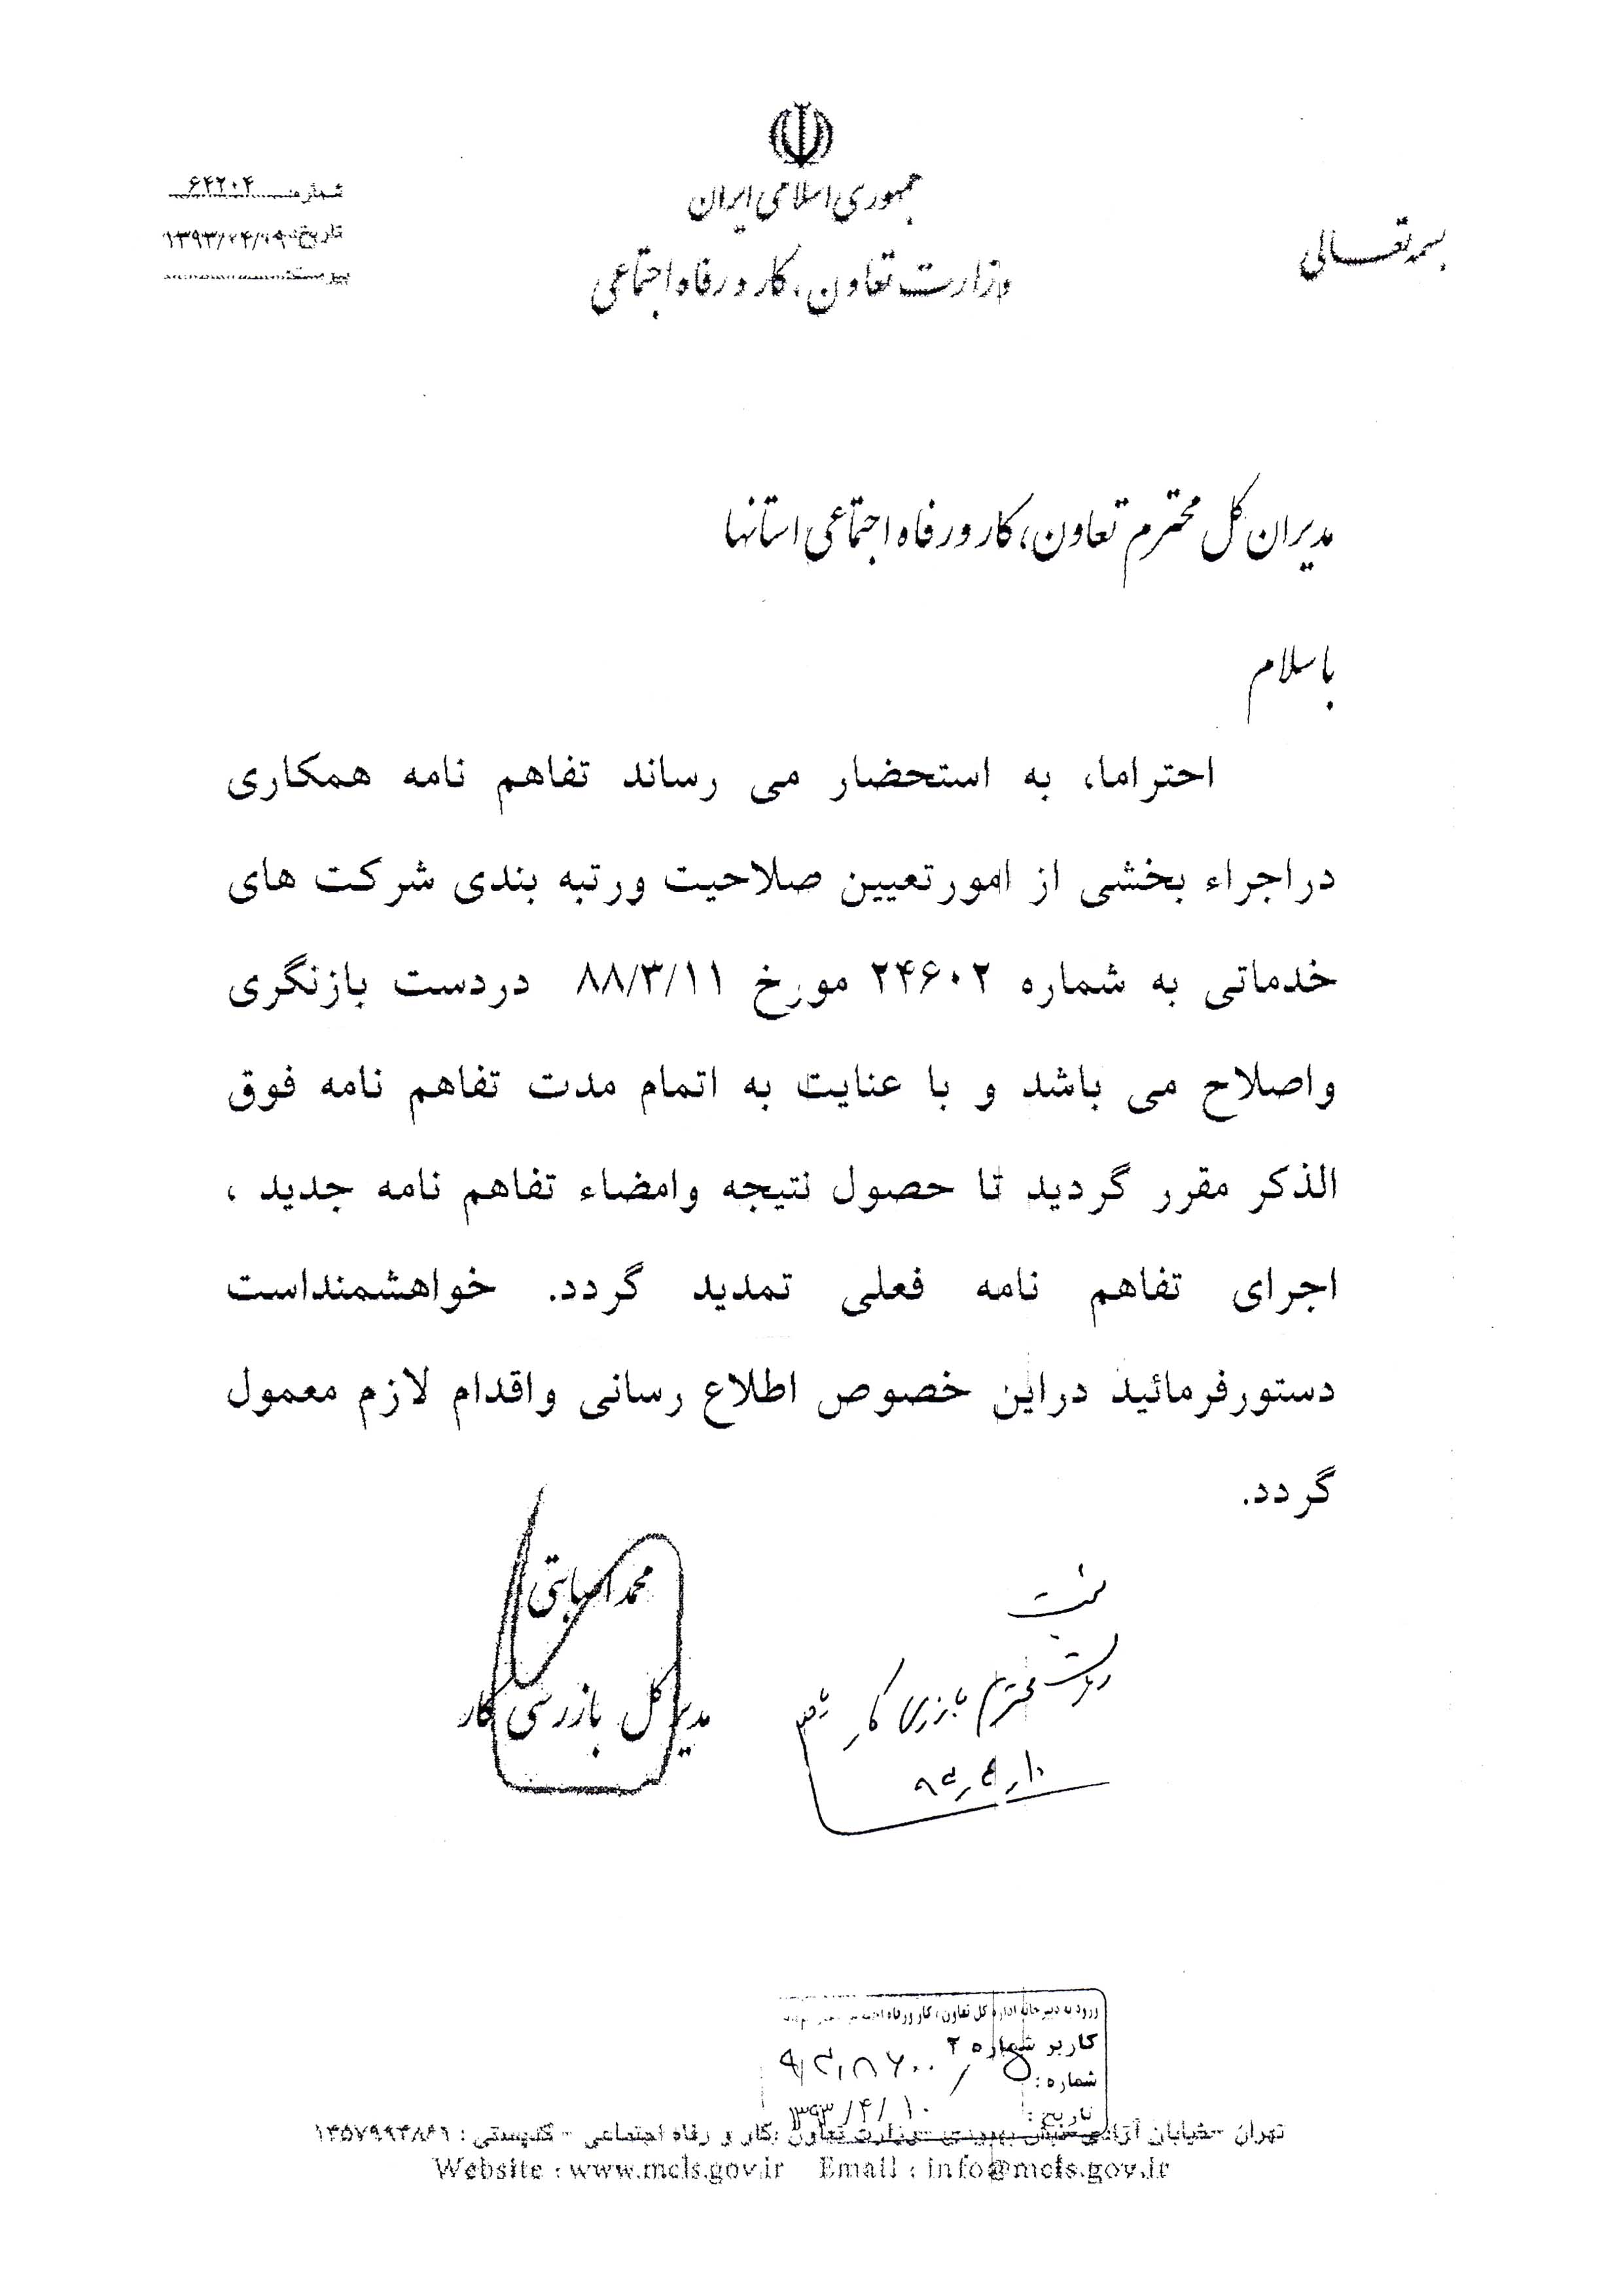 بسمه تعالی
جمهوری اسلامی ایران
وزارت تعاون، کار و رفاه اجتماعی
شماره ۶۴۲۰۴
تاریخ ۱۳۹۳/۰۴/۰۹
پیوست
مدیران کل محترم تعاون، کار و رفاه اجتماعی استانها
با سلام
احتراما، به استحضار می رساند تفاهم نامه همکاری
دراجراء بخشی از امورتعیین صلاحیت ورتبه بندی شرکت های
خدماتی به شماره ۲۴۶۰۲ مورخ ۸۸/۳/۱۱ دردست بازنگری
واصلاح می باشد و با عنایت به اتمام مدت تفاهم نامه فوق
الذکر مقرر گردید تا حصول نتیجه وامضاء تفاهم نامه جدید ،
اجرای تفاهم نامه فعلی تمدید گردد. خواهشمنداست
دستورفرمائید دراین خصوص اطلاع رسانی واقدام لازم معمول
گردد.
محمد
مدیر کل بازرسی کار
محترم بازرسی کار
ورود به دبیرخانه اداره کل تعاون، کار ورفاه
کاربر شماره ۲
شماره:
تاریخ: ۹۳/۴/۱۰
تهران - خیابان آزادی - نبش بهبودی - وزارت تعاون ،کار و رفاه اجتماعی - کدپستی : ۱۴۵۷۹۹۴۸۶۱
Website : www.mcls.gov.ir Email : info@mcls.gov.ir